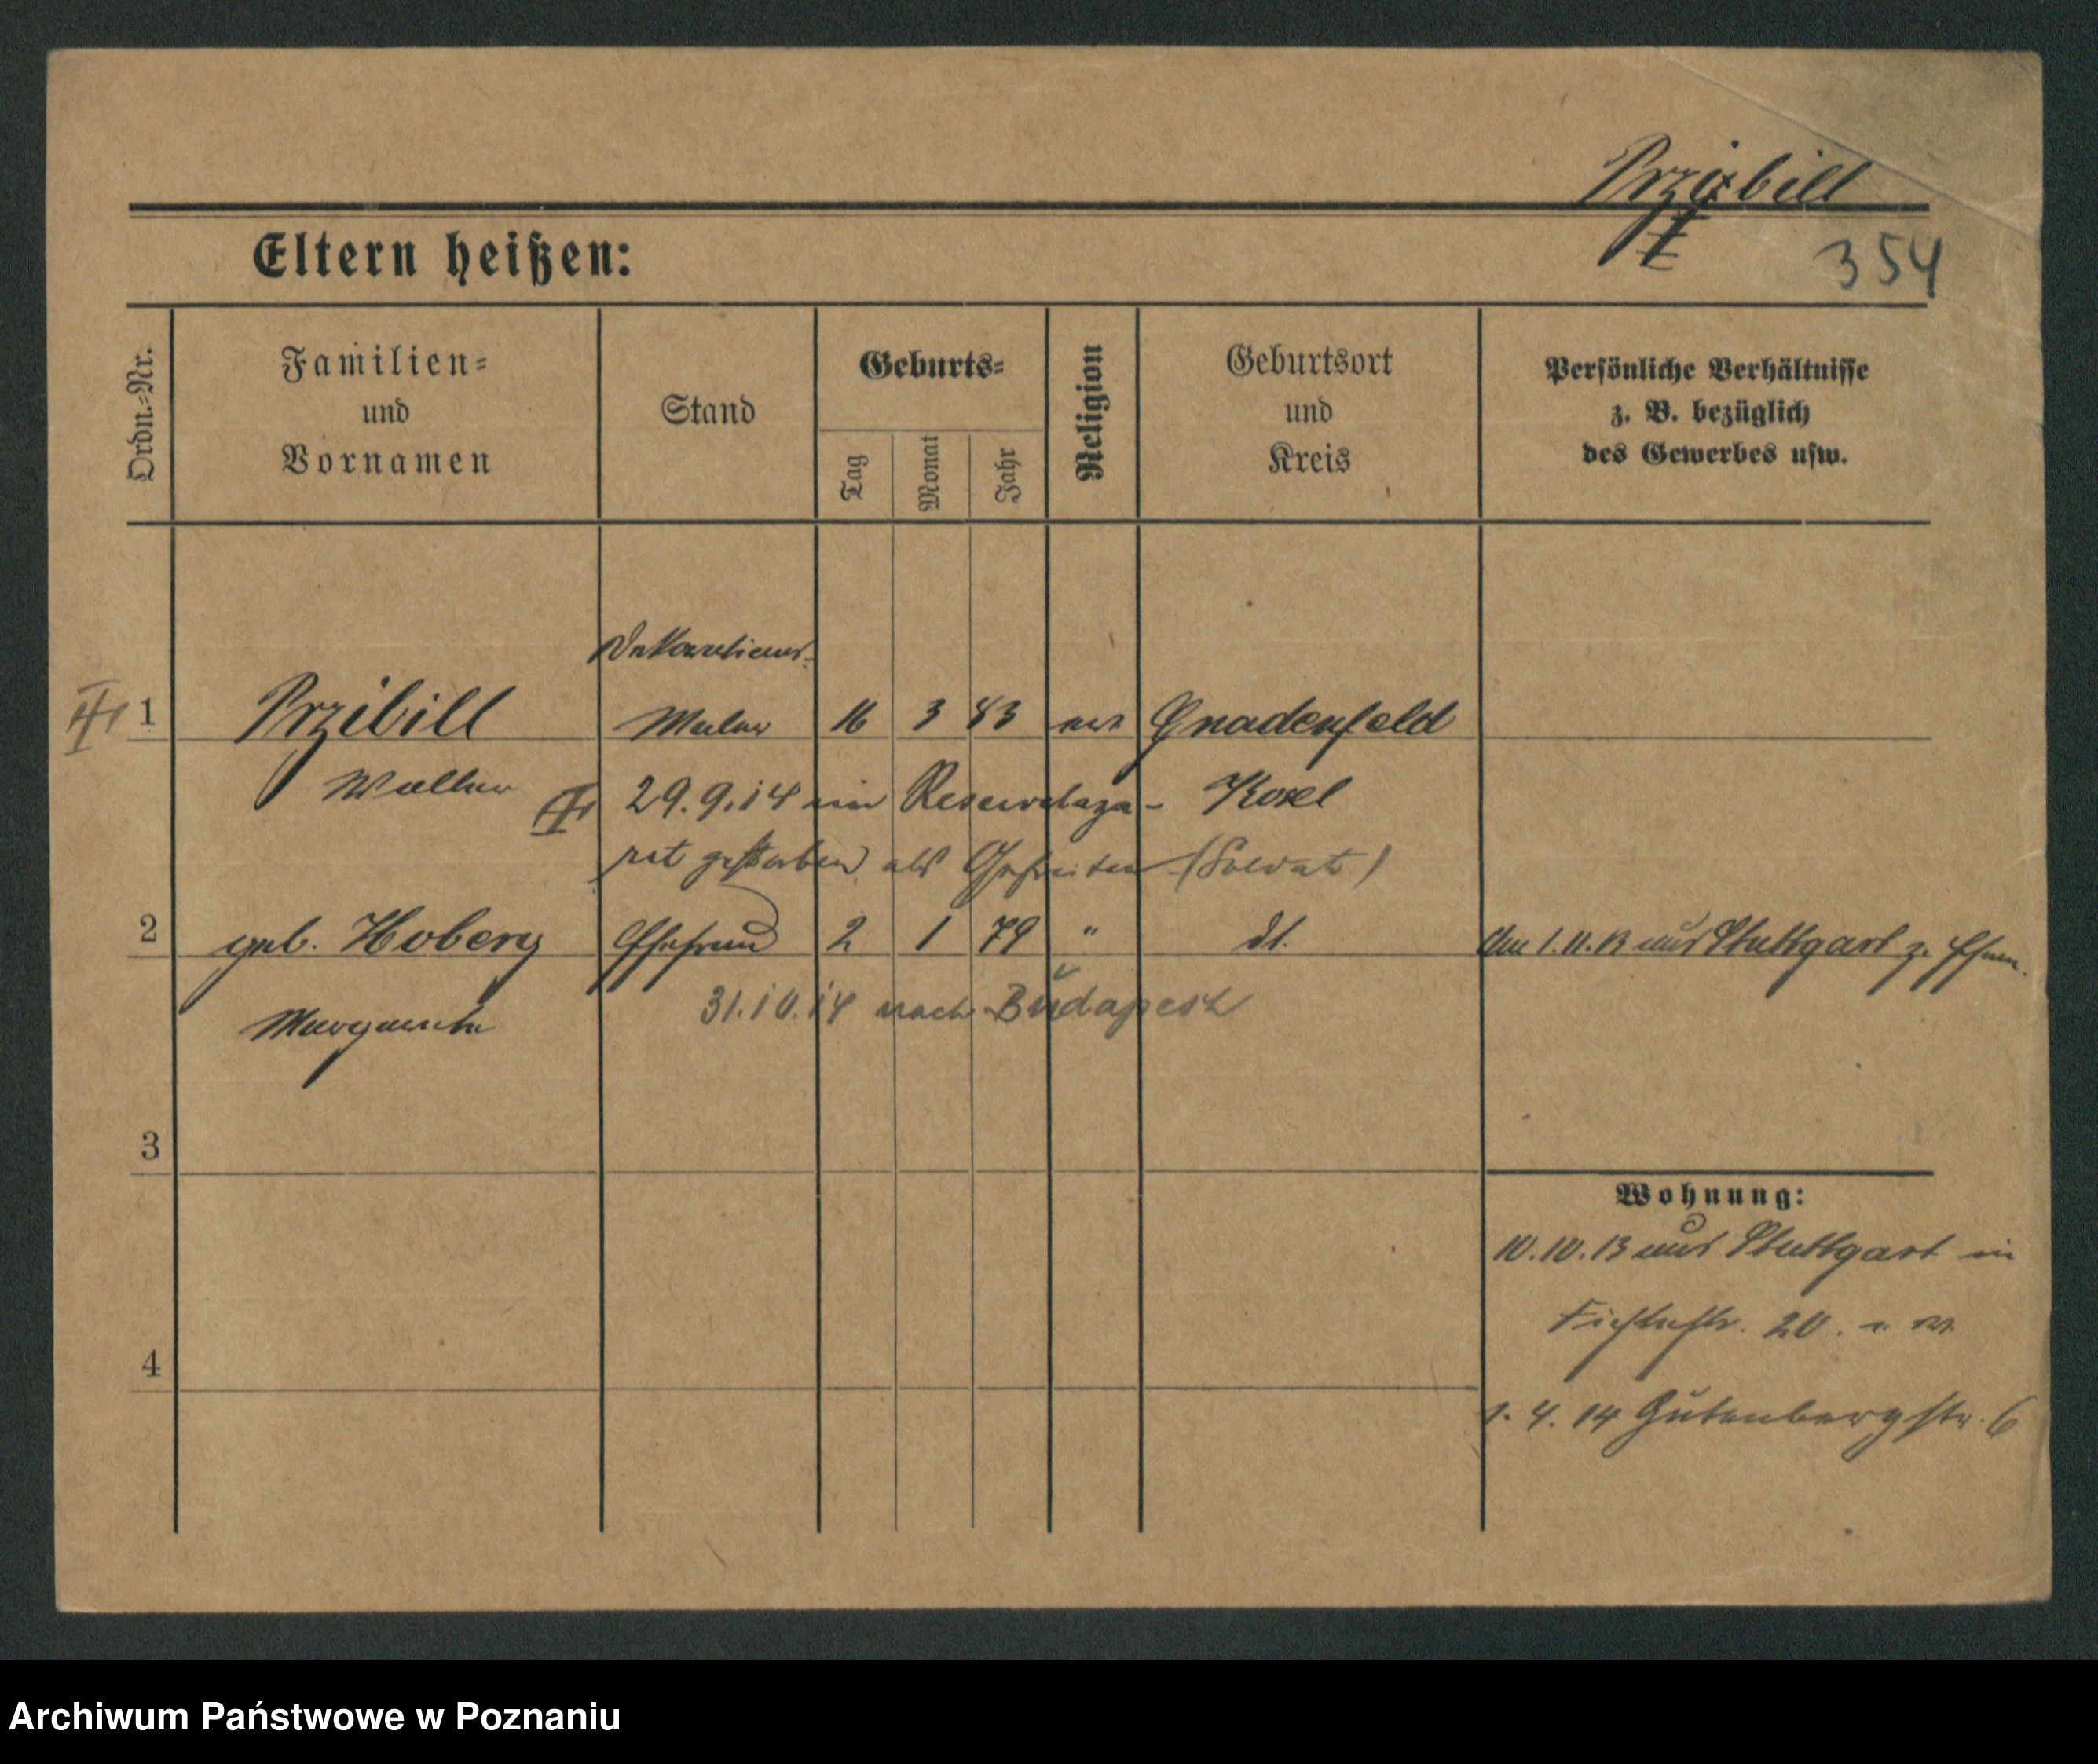 Przibill
354
Eltern heißen:
Ordn.-Nr.
Familien-
und
Vornamen
Stand
Geburts-
Tag
Monat
Jahr
Religion
Geburtsort
und
Kreis
Persönliche Verhältnisse
z. B. bezüglich
des Gewerbes usw.
Dekorations-
1 Przibill Maler 16 3 83 Gnadenfeld
Walter 29.9.14 im Reservelaza- Kosel
ret gestorben als Gefreiter (Soldat)
2 geb. Hoberg Ehefrau 2 1 79 " dt. Am 1.11.13 aus Stuttgart z. Ehem.
Margarete 31.10.14 nach Budapest
3
Wohnung:
10.10.13 aus Stuttgart in
Fichtestr. 20.
4
1.4.14 Gutenbergstr. 6
Archiwum Państwowe w Poznaniu